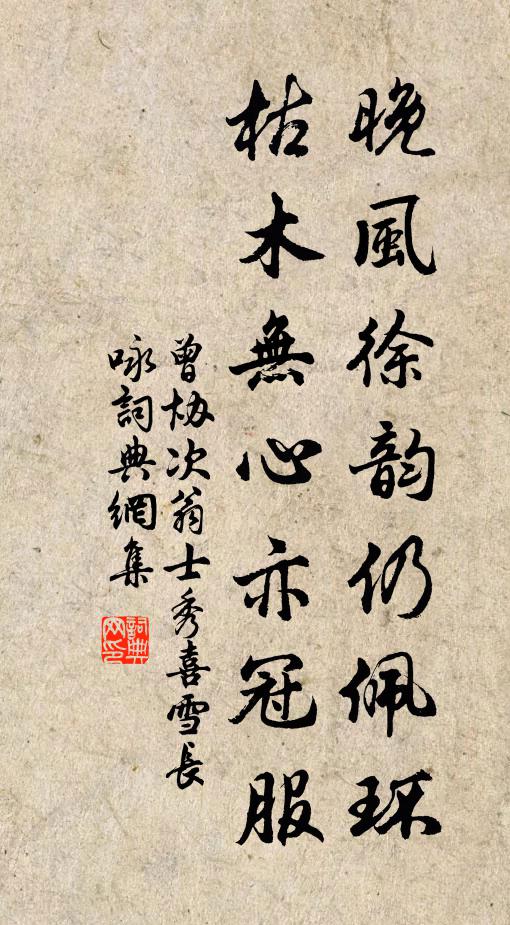 晚風徐韵仍佩環
枯木無心亦冠服
曾協次翁士秀喜雪長
咏詞典網集
詞典網印